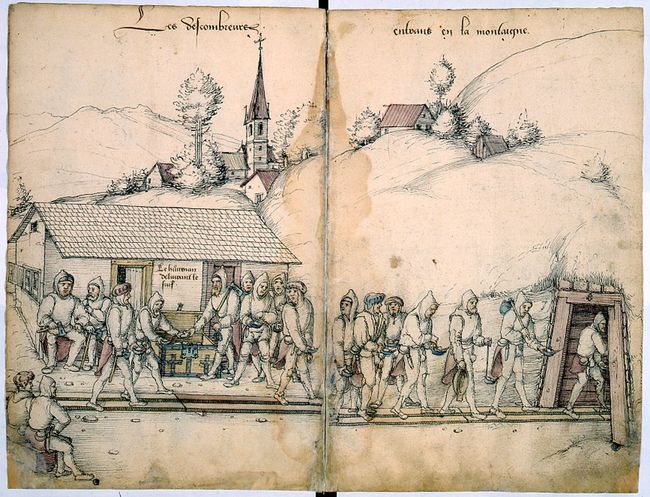 Les descombreurs
entrans en la montaigne.
Le
delivrant le
suif